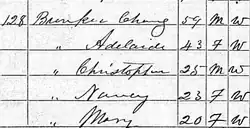 128 Bunker Chang 59 M W
" Adelaide 43 F W
" Christopher 25 M W
" Nancy 23 F W
" Mary 20 F W